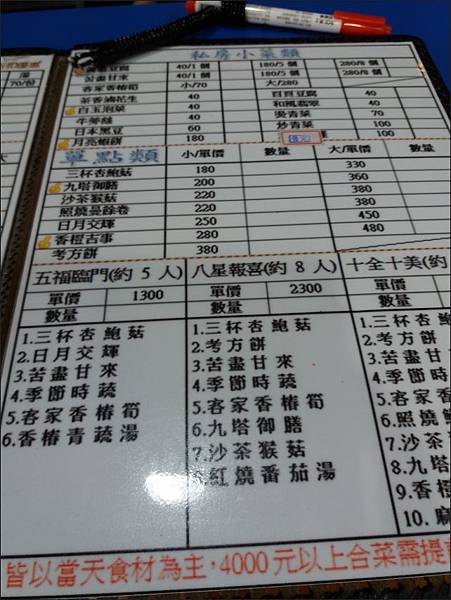 私房小菜類
湯 70/份
豆腐 40/1個 180/5個 280/8個
苦盡甘來 40/1個 180/5個 280/8個
客家香椿筍 小/70 大/280
茶香滷花生 40 百頁豆腐 40
白玉泡菜 40 和風翡翠 40
牛蒡絲 40 燙青菜 70
日本黑豆 60 炒青菜 100
月亮蝦餅 180 100
單點類 小/單價 數量 大/單價 數量
三杯杏鮑菇 180 330
九塔御膳 200 360
沙茶猴菇 220 380
照燒曼餘卷 220 380
日月交輝 250 450
香橙古事 280 480
考方餅 380
五福臨門(約 5 人) 八星報喜(約 8 人) 十全十美(約
單價 1300 單價 2300 單價
數量 數量 數量
1.三杯杏鮑菇
2.日月交輝
3.苦盡甘來
4.季節時蔬
5.客家香椿筍
6.香椿青蔬湯
1.三杯杏鮑菇
2.考方餅
3.苦盡甘來
4.季節時蔬
5.客家香椿筍
6.九塔御膳
7.沙茶猴菇
8.紅燒番茄湯
1.三杯杏鮑
2.考方餅
3.苦盡甘
4.季節時
5.客家香
6.照燒
7.沙茶
8.九塔
9.香橙
10.
皆以當天食材為主,4000元以上合菜需提